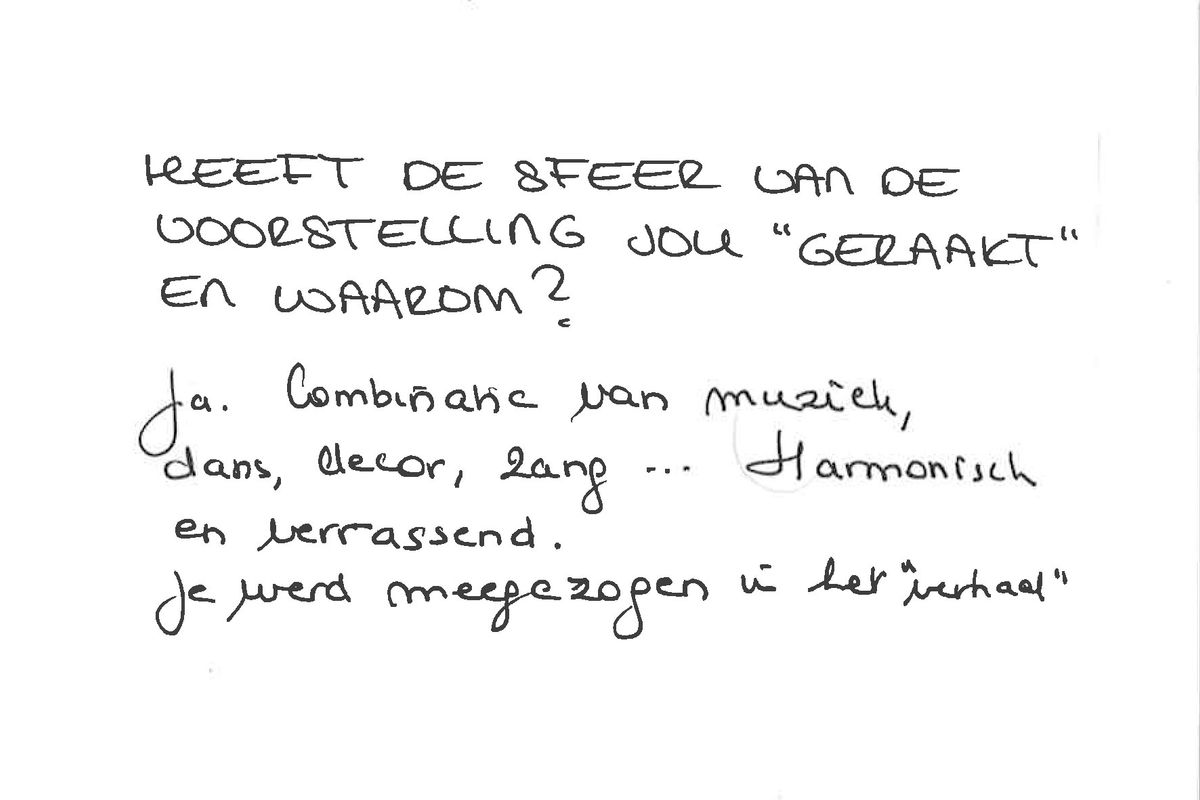 HEEFT DE SFEER VAN DE
VOORSTELLING JOU "GERAAKT"
EN WAAROM?
Ja. Combinatie van muziek,
dans, decor, zang ... Harmonisch
en verrassend.
Je werd meegezogen in het "verhaal"